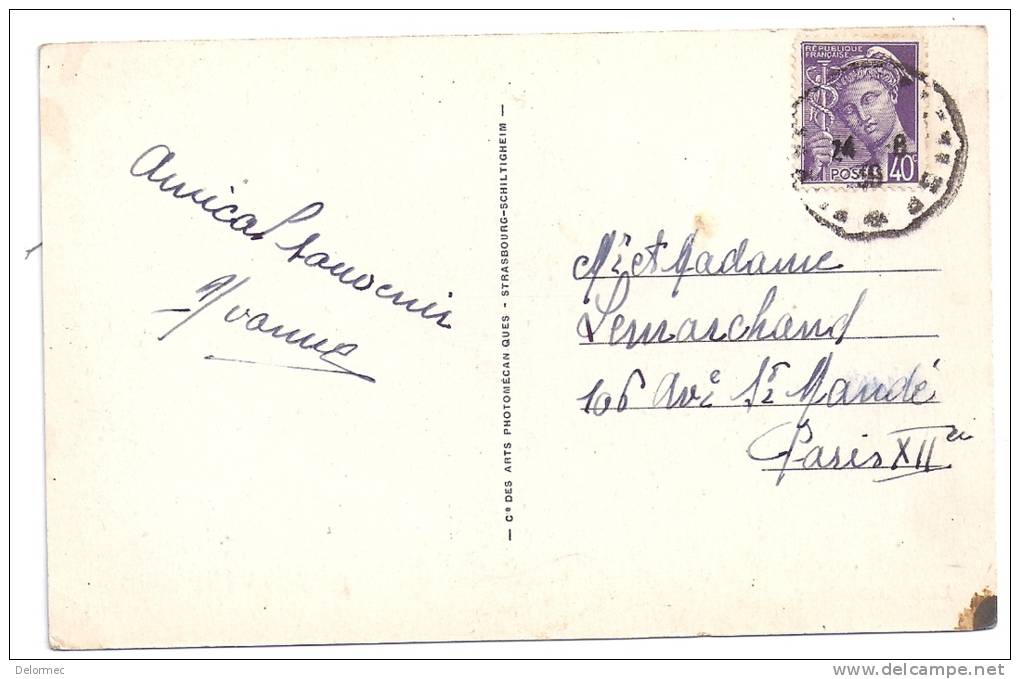 Amical Souvenir
Yvonne
— Cie DES ARTS PHOTOMÉCAN QUES - STRASBOURG-SCHILTIGHEIM —
RÉPUBLIQUE
FRANÇAISE
24 -8
39
POSTES 40c
Mr et Madame
Lemarchand
106 Ave St Mandé
Paris XIIe
Delormec
www.delcampe.net